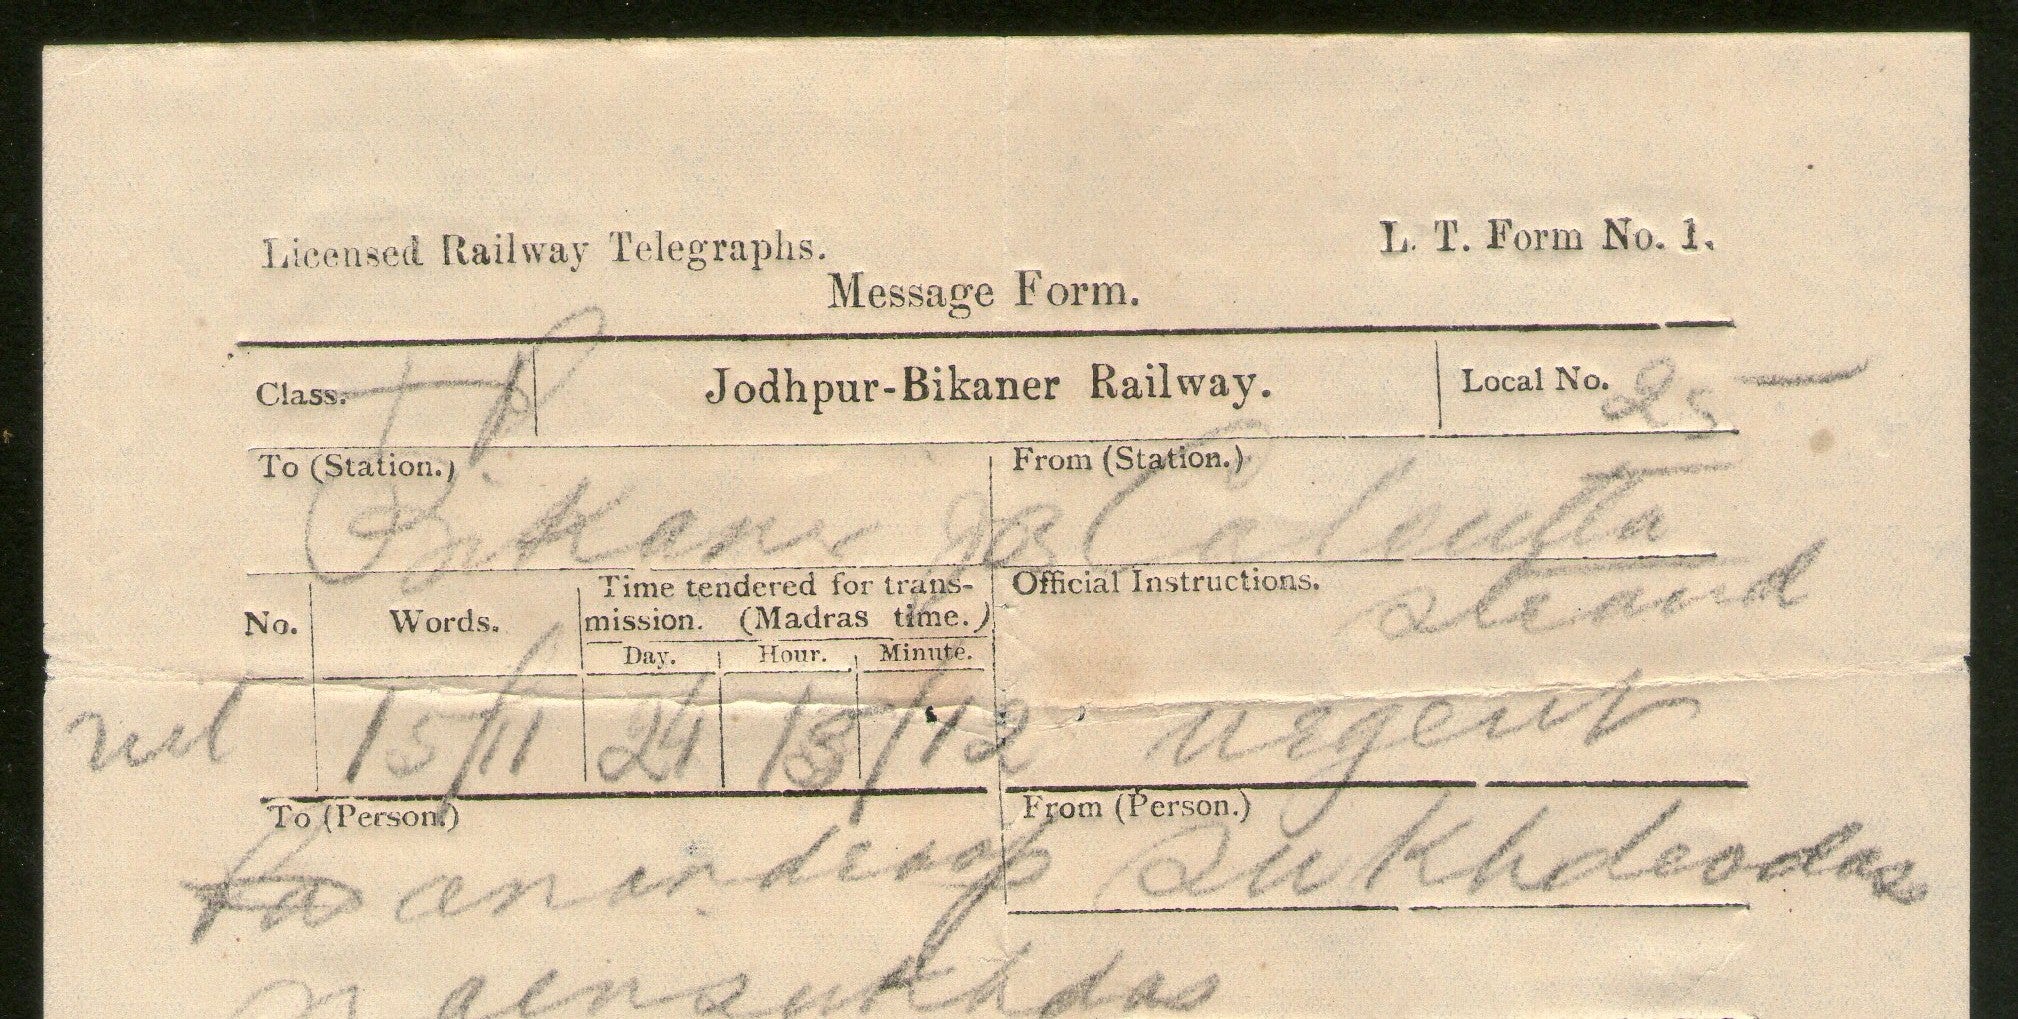 Licensed Railway Telegraphs. L. T. Form No. 1.
Message Form.
Class. Jodhpur-Bikaner Railway. Local No. 25
To (Station.) From (Station.)
Bikaner Calcutta
Strand
No. Words. Time tendered for trans-
mission. (Madras time.) Official Instructions.
Day. Hour. Minute.
nil 15/11 24 18/12 urgent
To (Person.) From (Person.)
Sukhdeodas